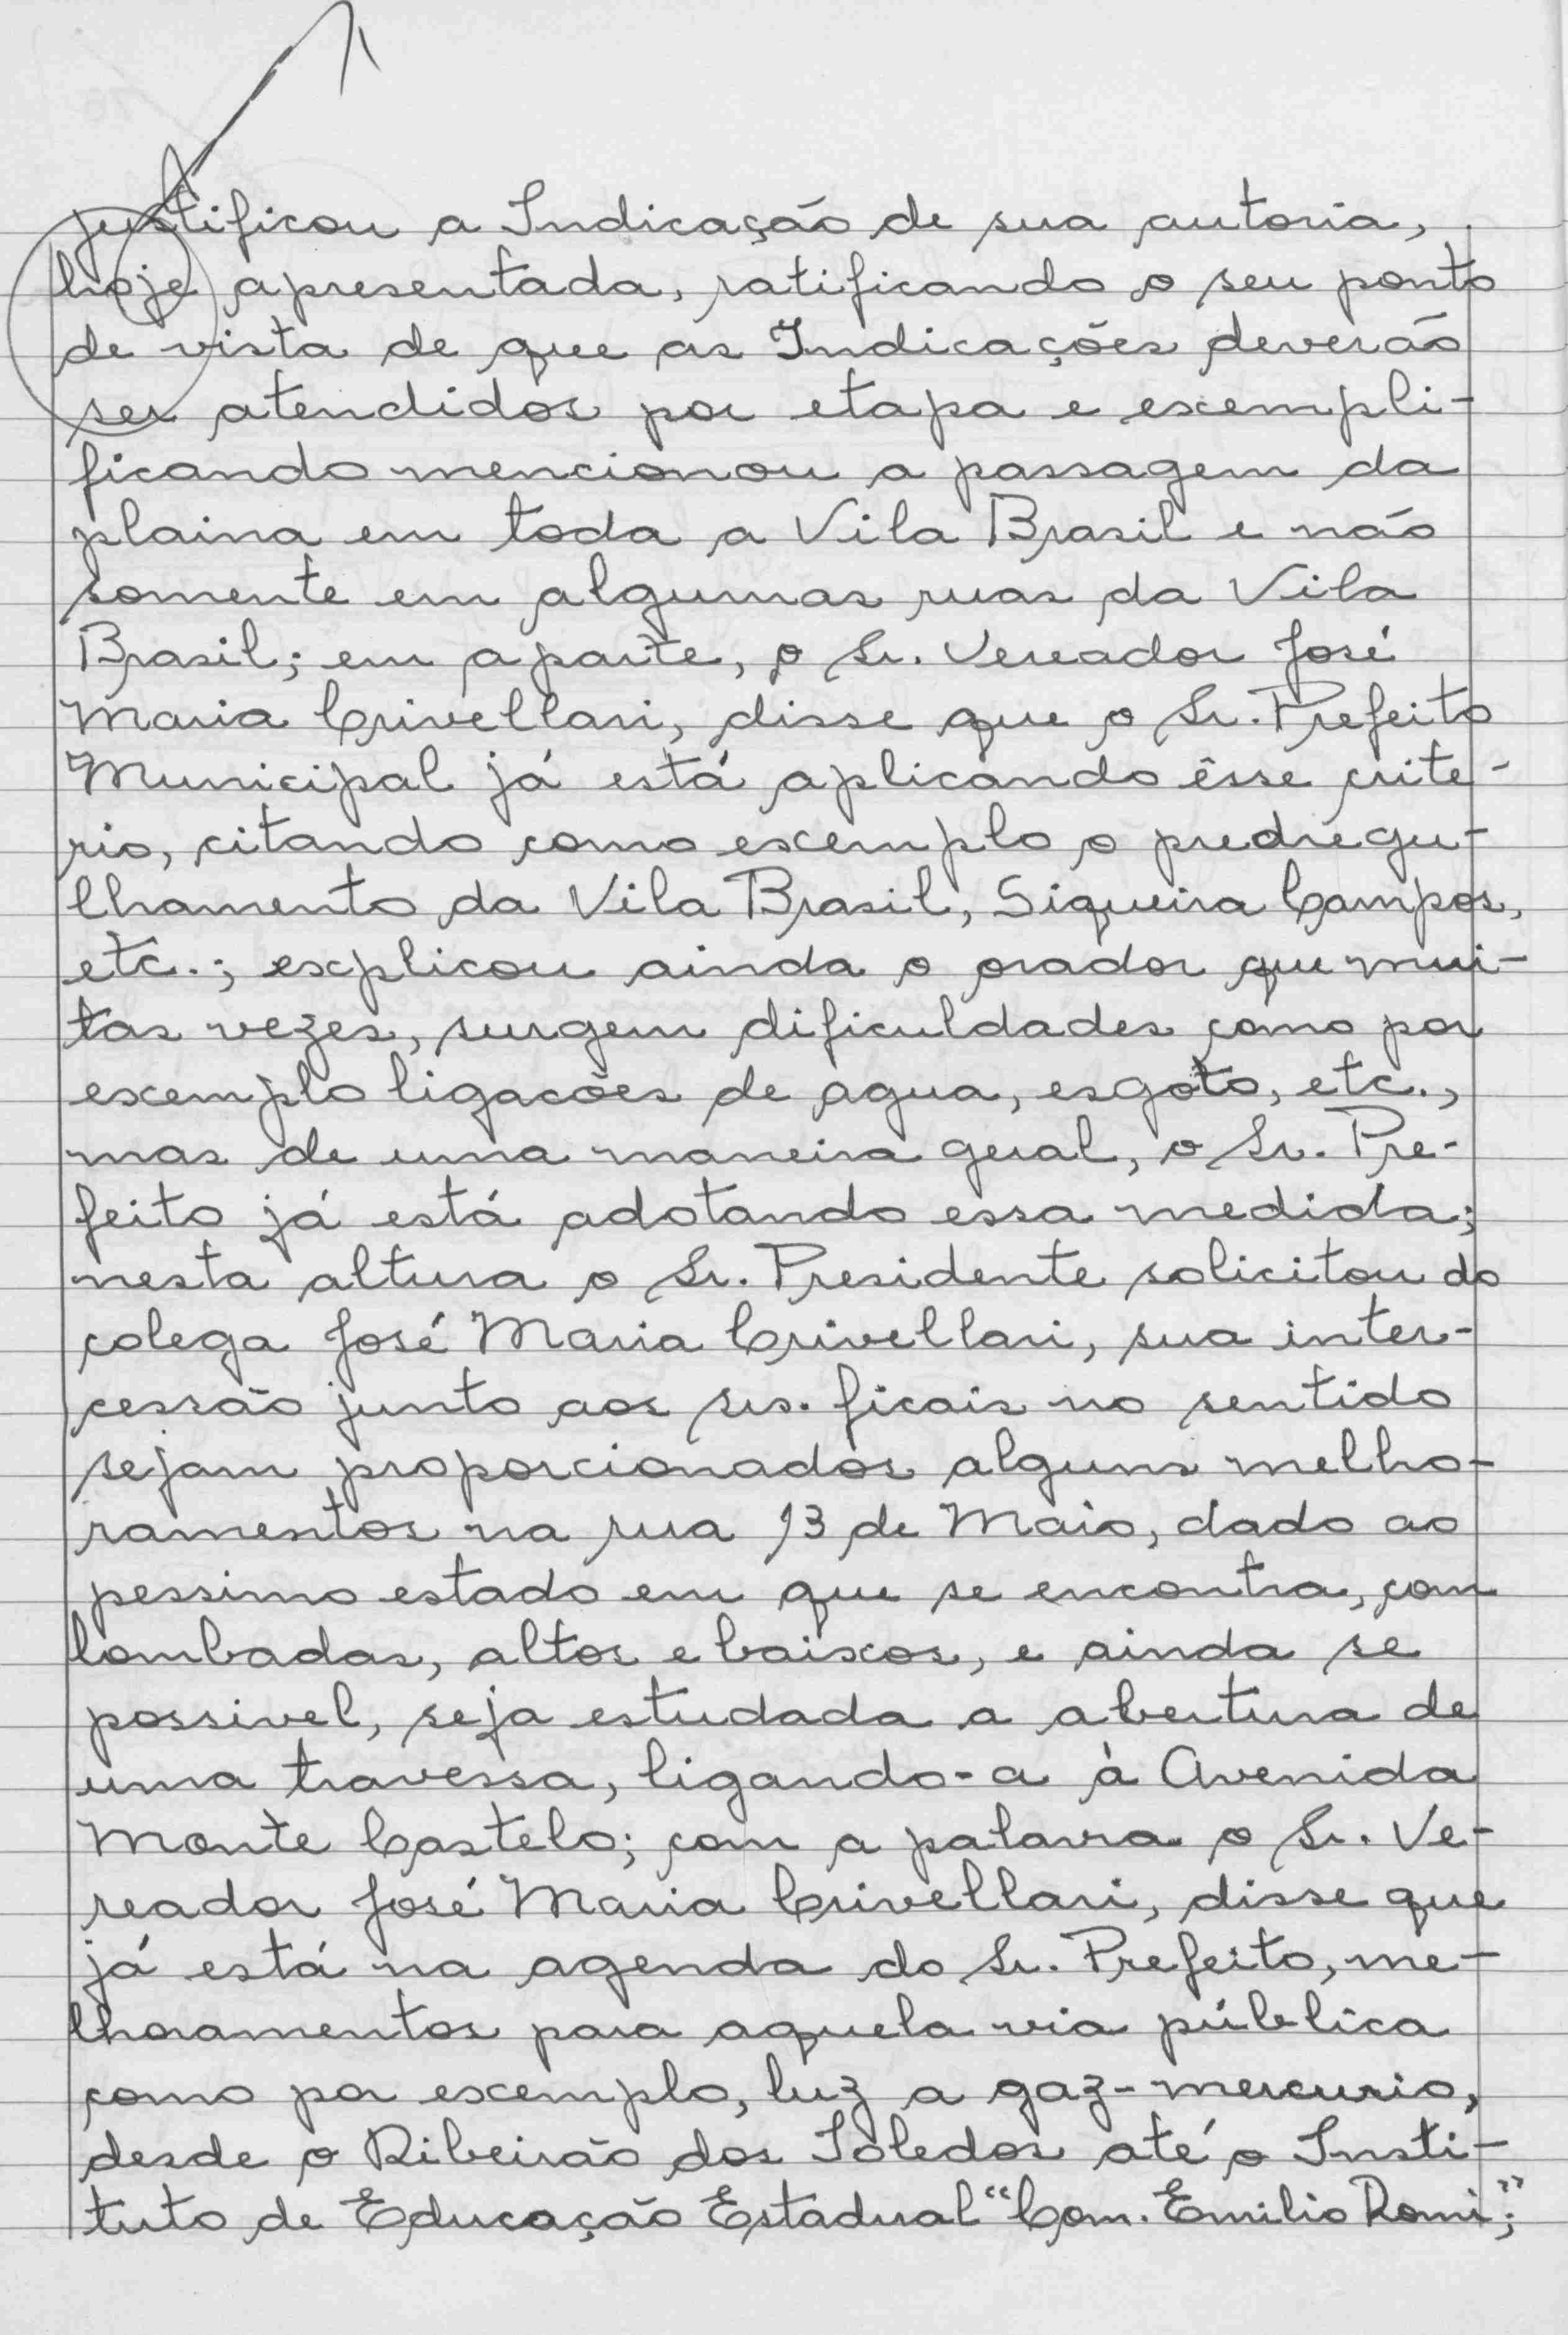 justificou a Indicação de sua autoria,
hoje apresentada, ratificando o seu ponto
de vista de que as Indicações deverão
ser atendidos por etapa e exempli-
ficando mencionou a passagem da
plaina em toda a Vila Brasil e não
somente em algumas ruas da Vila
Brasil; em aparte, o Sr. Vereador José
Maria Crivellari, disse que o Sr. Prefeito
Municipal já está aplicando êsse crite-
rio, citando como exemplo o predregu-
lhamento da Vila Brasil, Siqueira Campos,
etc.; explicou ainda o orador que mui-
tas vezes, surgem dificuldades como por
exemplo ligacões de agua, esgoto, etc.,
mas de uma maneira geral, o Sr. Pre-
feito já está adotando essa medida;
nesta altura o Sr. Presidente solicitou do
colega José Maria Crivellari, sua inter-
cessão junto aos srs. ficais no sentido
sejam proporcionados alguns melho-
ramentos na rua 13 de Maio, dado ao
pessimo estado em que se encontra, com
lombadas, altos e baixos, e ainda se
possivel, seja estudada a abertura de
uma travessa, ligando-a à Avenida
Monte Castelo; com a palavra o Sr. Ve-
reador José Maria Crivellari, disse que
já está na agenda do Sr. Prefeito, me-
lhoramentos para aquela via pública
como por exemplo, luz a gaz-mercurio,
desde o Ribeirão dos Toledos até o Insti-
tuto de Educação Estadual "Com. Emilio Romi";